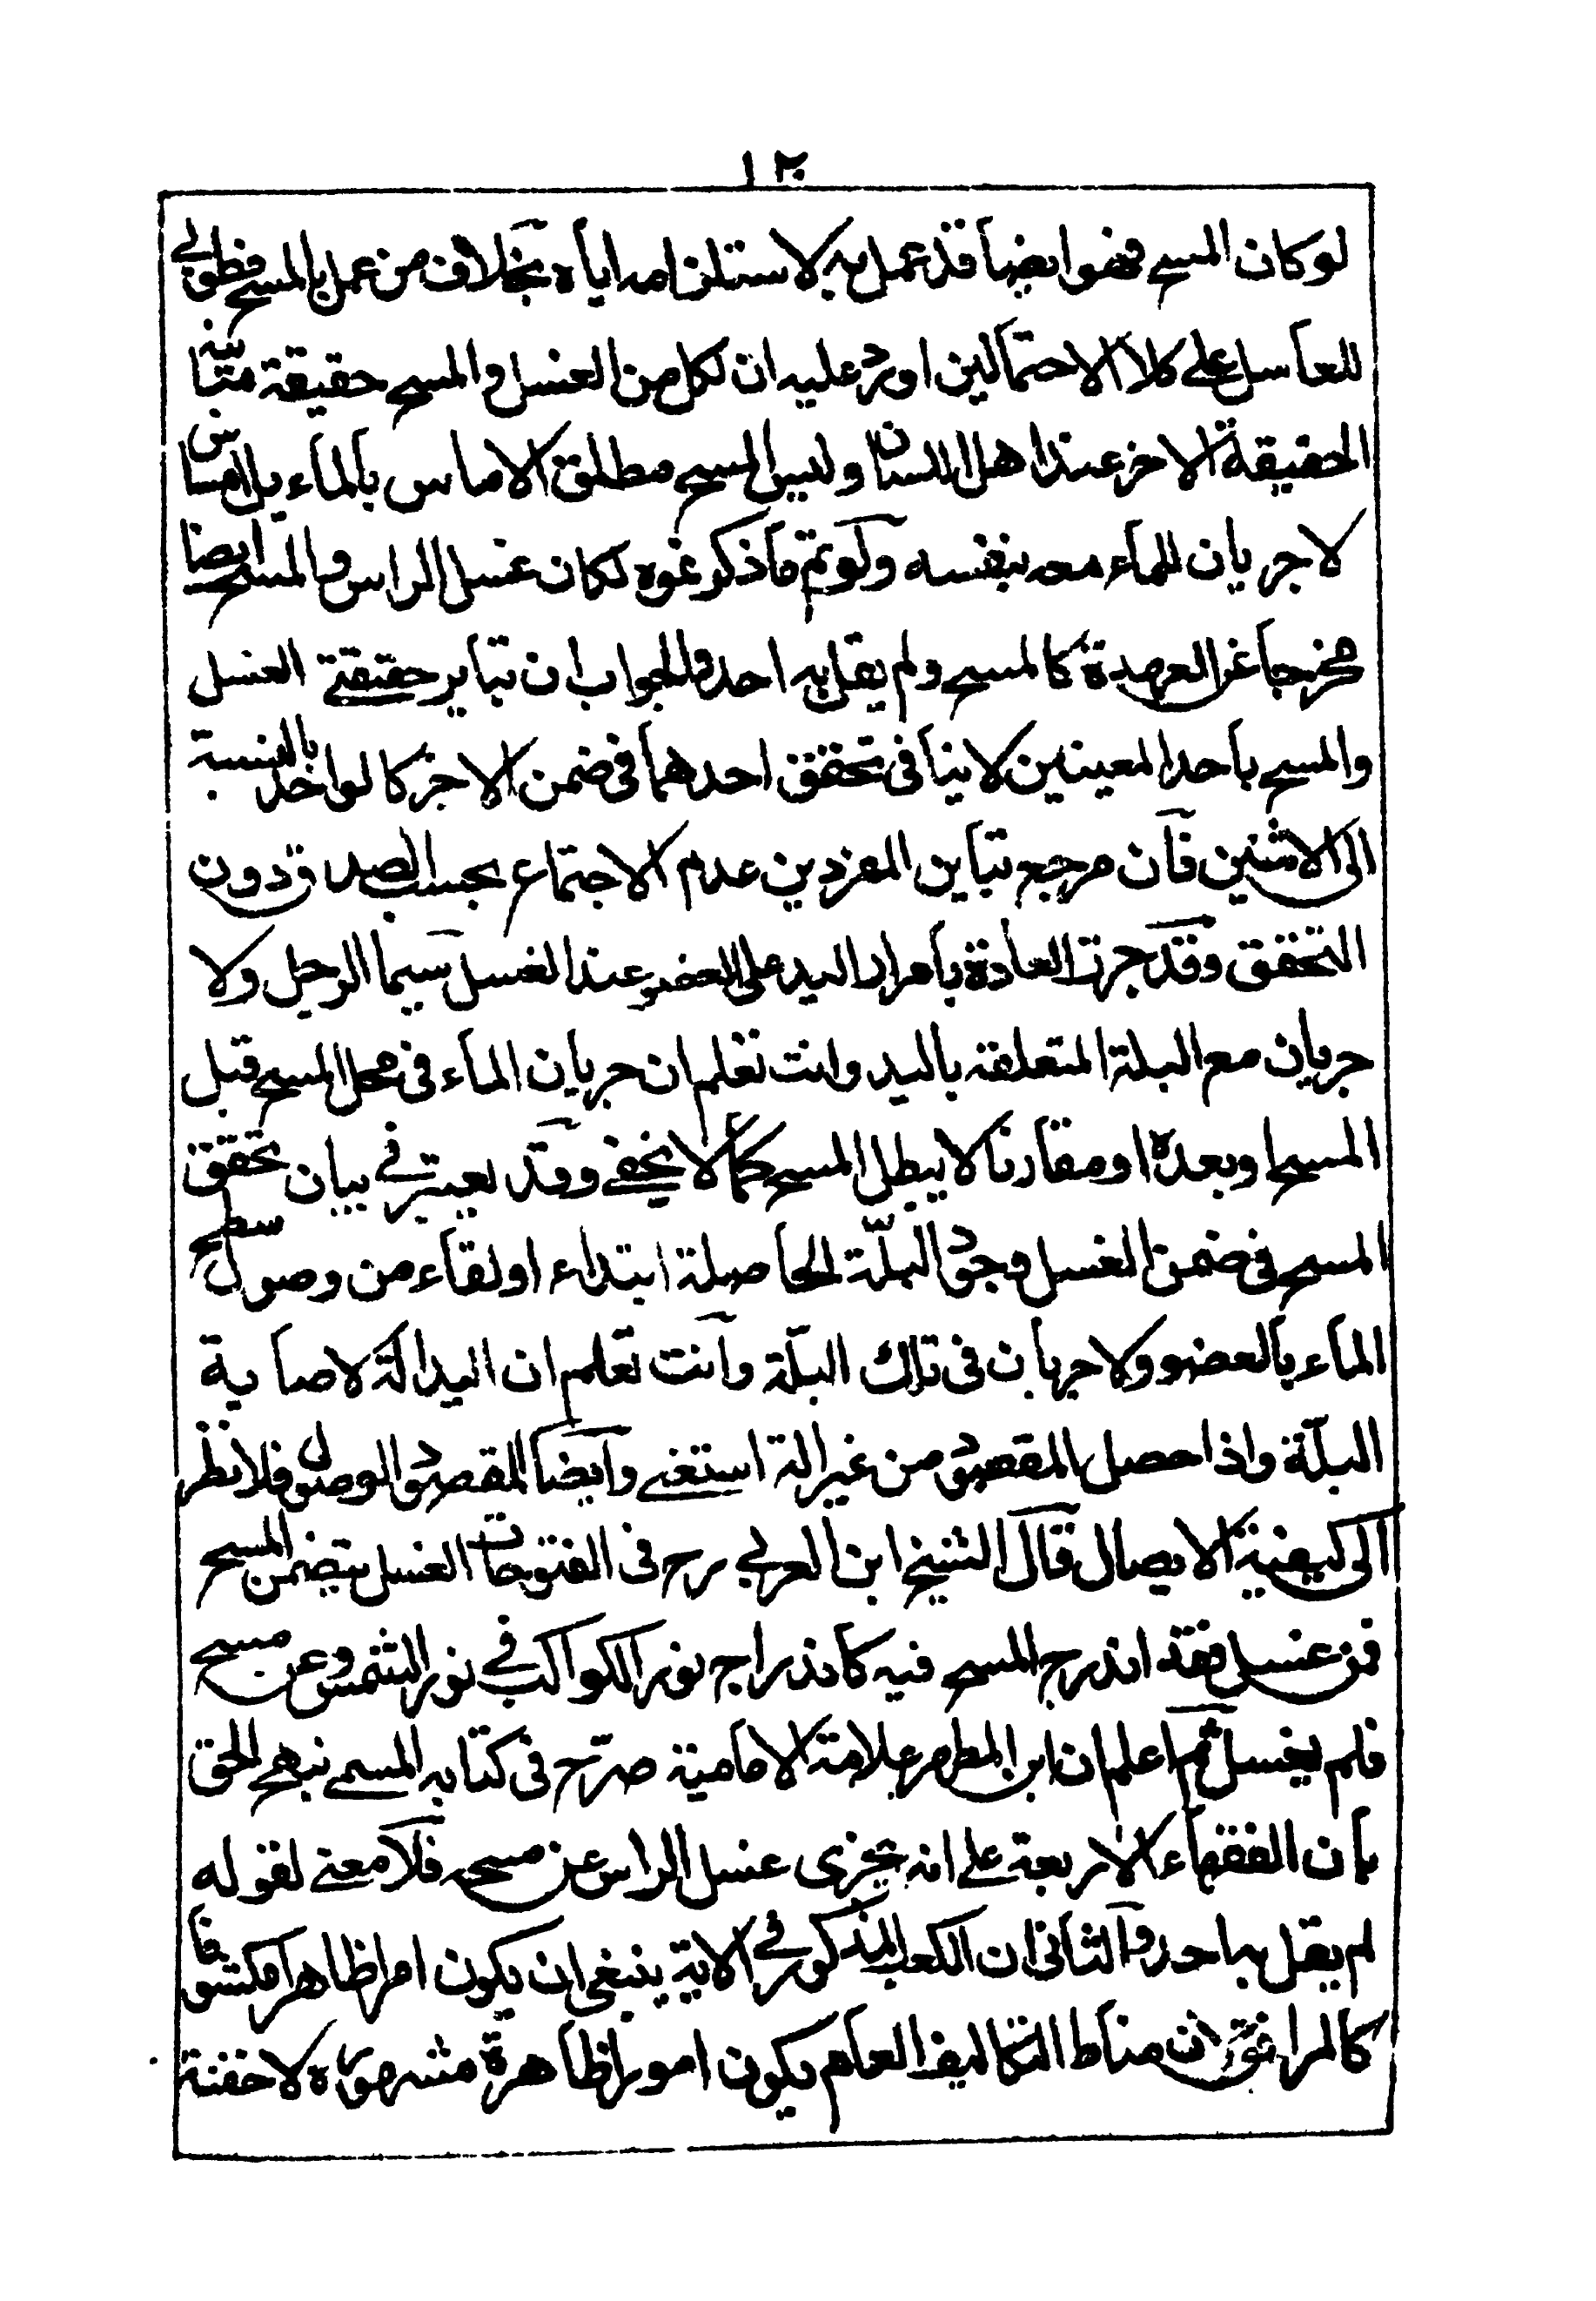 ١٢
لو كان المسح فهو ايضا قد عمل به لاستلزامه اياه بخلاف من عمل بالمسح فطوبى
للغاسل على كلا الاحتمالين اورد عليه ان لكل من الغسل والمسح حقيقة متباينة
الحقيقة الاخر عند اهل اللسان وليس المسح مطلق الامساس بالماء بل امساس
لا جريان للماء معه بنفسه ولو تم ما ذكرتموه لكان غسل الراس والمسح ايضا
مخرجا عن العهدة كالمسح ولم يقل به احد والجواب ان تباير حقيقتي الغسل
والمسح باحد المعينين لا ينافى تحقق احدهما فى ضمن الاخر كالواحد بالنسبة
الى الاثنين فان مرجع تباين المفردين عدم الاجتماع بحسب الصدق دون
التحقق وقد جرت العادة بامرار اليد على العضو عند الغسل سيما الرجل ولا
جريان مع البلة المتعلقة باليد وانت تعلم ان جريان الماء فى محل المسح قبل
المسح او بعده او مقارنا لا يبطل المسح كما لا يخفى وقد يعتبر فى بيان تحقق
المسح فى ضمن الغسل وجود البلّة الحاصلة ابتداء او لقاء من وصول سطح
الماء بالعضو ولا جريان فى تلك البلّة وانت تعلم ان اليد الة لاصابة
البلّة واذا حصل المقصود من غير الة استغنى وايضا المقصود الوصول فلا نظر
الى كيفية الايصال قال الشيخ ابن العربى رح فى الفتوحات الغسل يتضمن المسح
فمن غسل فقد اندرج المسح فيه كاندراج نور الكواكب فى نور الشمس وعن مسح
فلم يغسل ثم اعلم ان ابن المطهر علامة الامامية صرّح فى كتابه المسمى نبهج الحق
بان الفقهاء الاربعة على انه يجزى غسل الراس عن مسحه فلا معنى لقوله
لم يقل به احد والثانى ان الكعب المذكور فى الاية ينبغى ان يكون امرا ظاهرا مكشوفا
كالمرافق لان مناط التكاليف العام يكون امورا ظاهرة مشهورة لا خفية